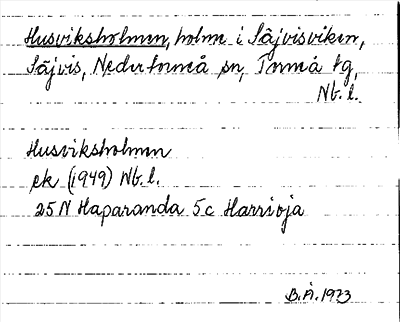 Husviksholmen, holme i Säjvisviken,
Säjvis, Nedertorneå sn, Torneå tg,
Nb. l.
Husviksholmen
ek (1949) Nb. l.
25 N Haparanda 5c Harrioja
B.Å. 1973